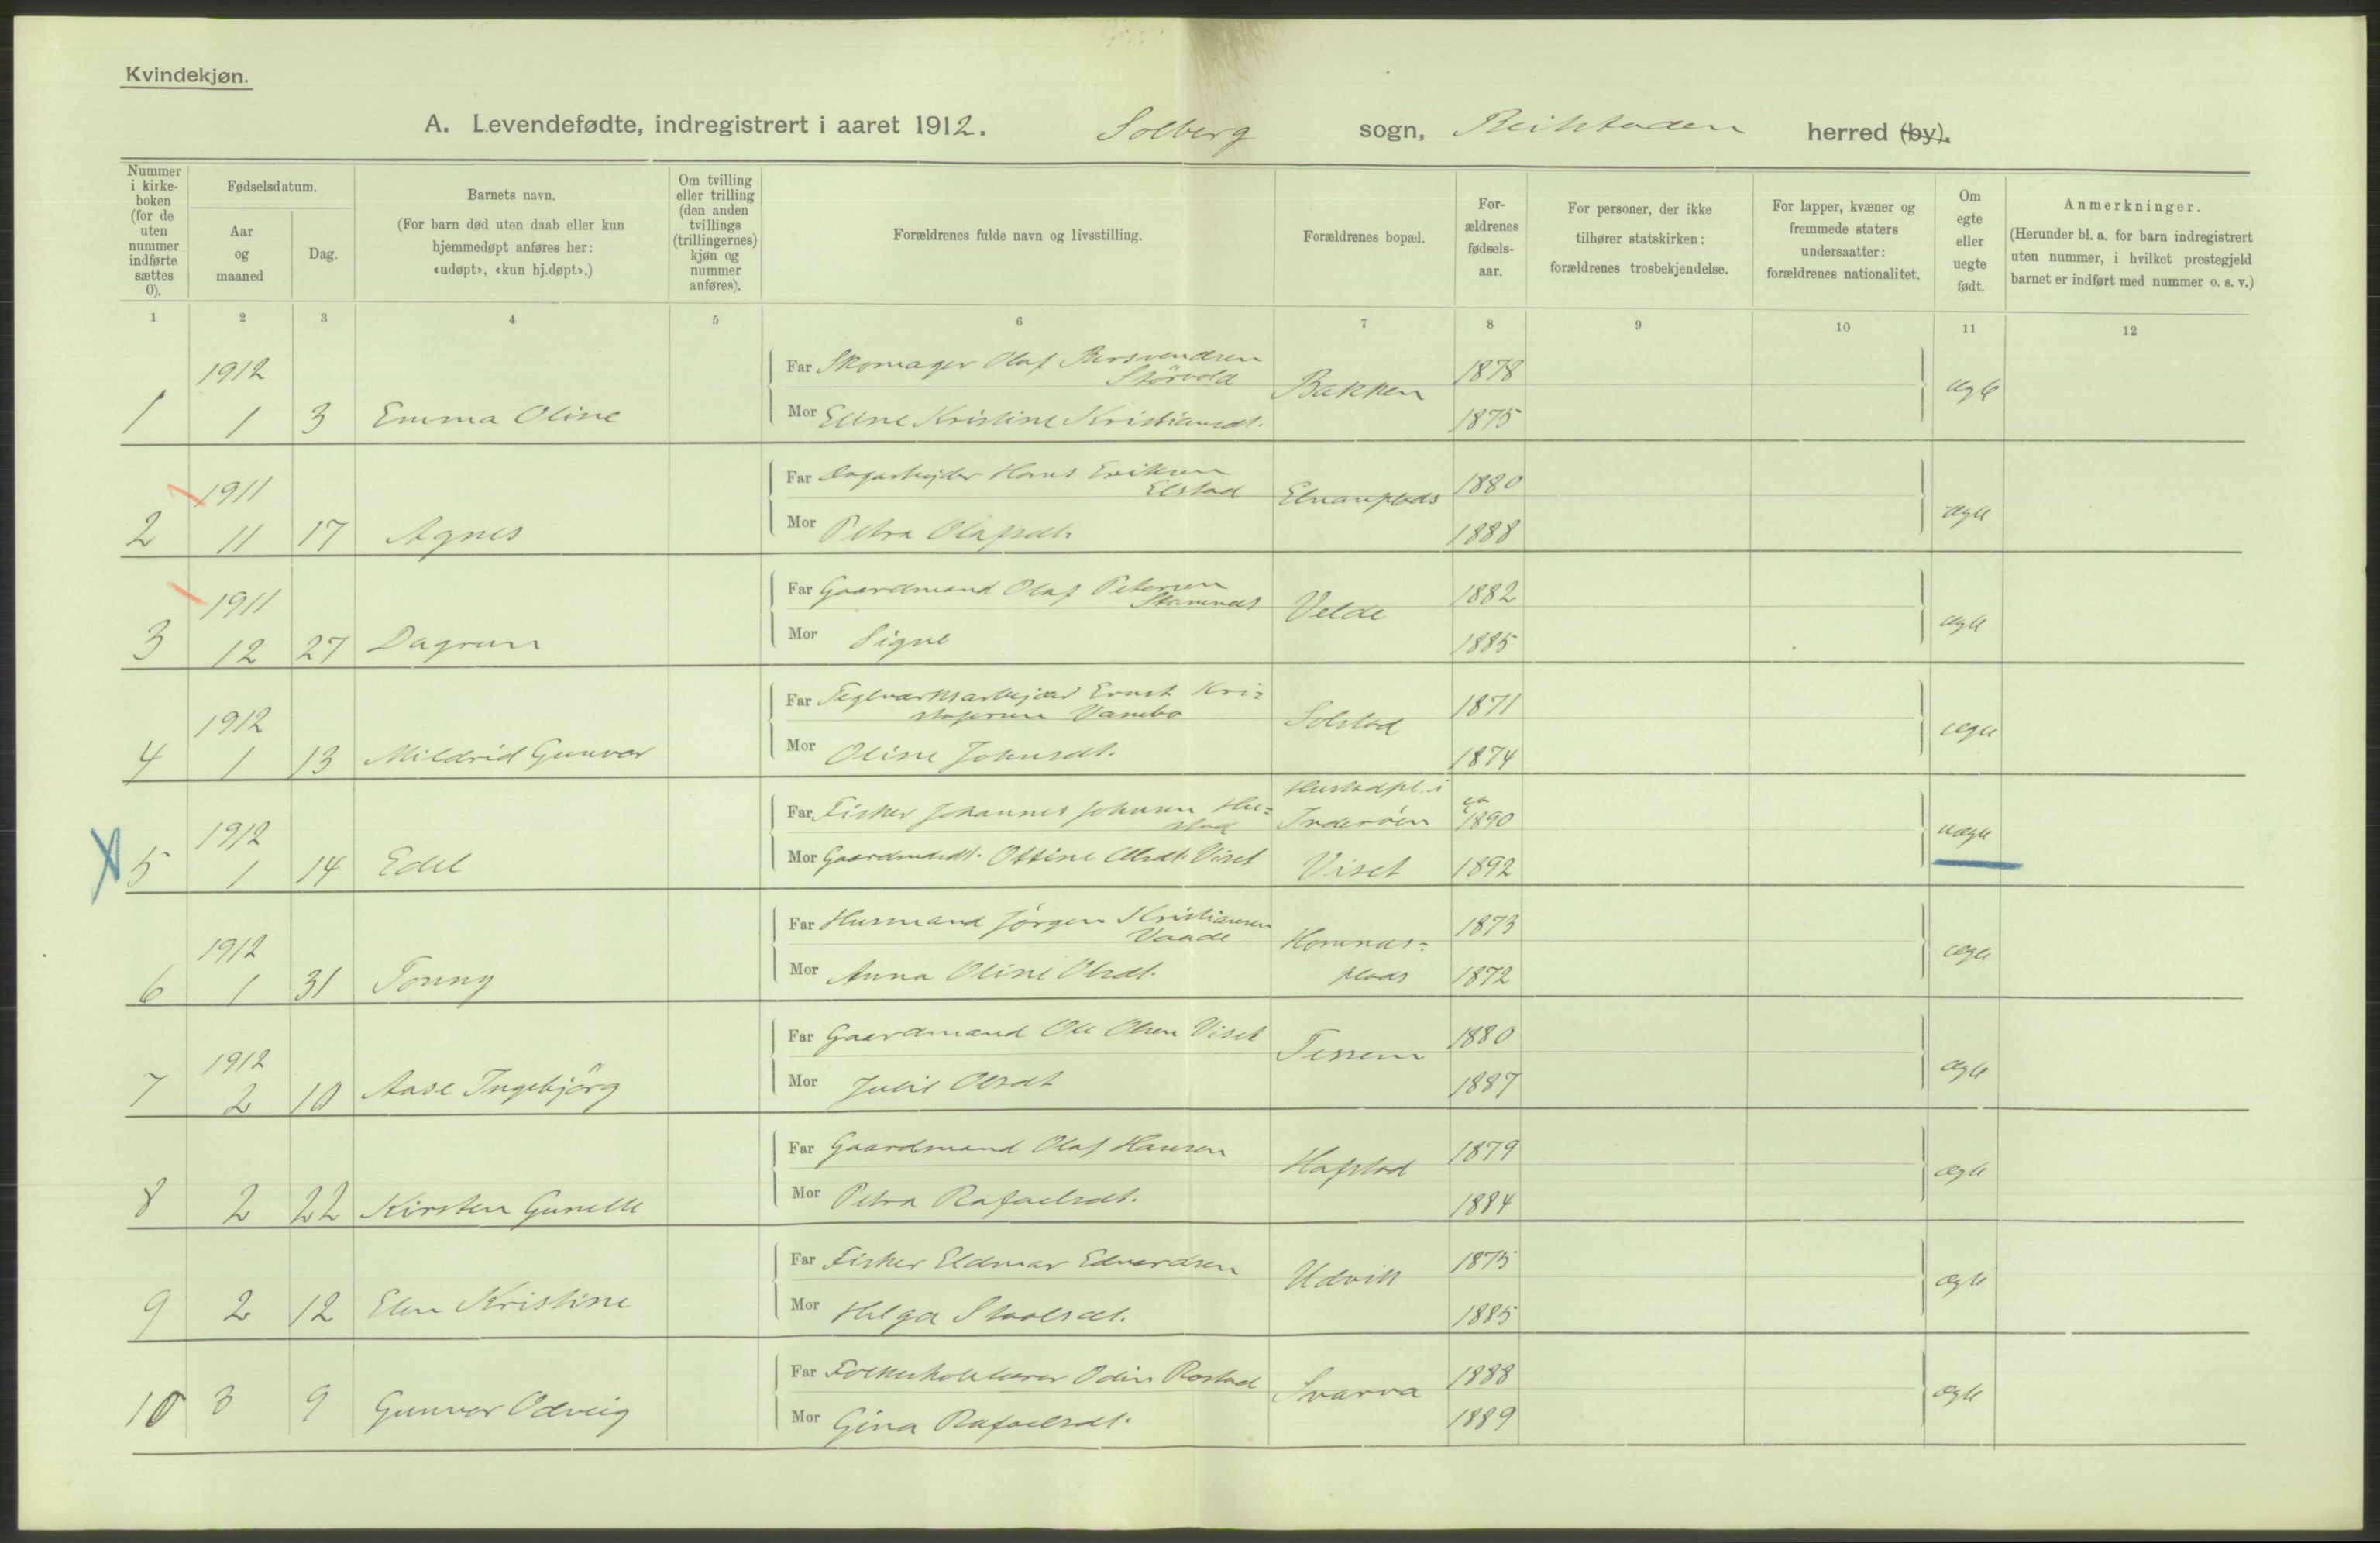 Kvindekjøn.
A. Levendefødte, indregistrert i aaret 1912. Solberg sogn, Beitstaden herred (by).
Nummer i kirke-boken (for de uten nummer indførte sættes 0).
Fødselsdatum.
Aar og maaned
Dag.
Barnets navn.
(For barn død uten daab eller kun hjemmedøpt anføres her: «udøpt», «kun hj.døpt».)
Om tvilling eller trilling (den anden tvillings (trillingernes) kjøn og nummer anføres).
Forældrenes fulde navn og livsstilling.
Forældrenes bopæl.
For-ældrenes fødsels-aar.
For personer, der ikke tilhører statskirken: forældrenes trosbekjendelse.
For lapper, kvæner og fremmede staters undersaatter: forældrenes nationalitet.
Om egte eller uegte født.
Anmerkninger.
(Herunder bl. a. for barn indregistrert uten nummer, i hvilket prestegjeld barnet er indført med nummer o. s. v.)
1 2 3 4 5 6 7 8 9 10 11 12
1912
1 1 3 Emma Oline
Far Skomager Olaf
Mor Eline Kristine Kristiansdt.
Bakken
1878
1875
ægte
1911
2 11 17 Agnes
Far Dagarbejder Hans Eriksen
Elstad
Mor Petra Olafsdt.
1880
1888
ægte
1911
3 12 27 Dagrun
Far Gaardmand Olaf Petersen
Stamnes
Mor Signe
Velde
1882
1885
ægte
1912
4 1 13 Mildrid Gunvor
Far Teglværksarbejder Ernst Kri=
stofersen Vambo
Mor Oline Johnsdt.
Solstad
1871
1874
ægte
1912
5 1 14 Edel
Far Fisker Johannes Johnsen Hu=
stad
Mor Gaardmdsdt. Ottine Olsdt. Viset
Hustadpl. i
Inderöen
Viset
ca
1890
1892
uægte
1912
6 1 31 Tonny
Far Husmand Jörgen Kristiansen
Vaade
Mor Anna Oline Olsdt.
Homnes=
plads
1873
1872
ægte
1912
7 2 10 Aase Ingebjörg
Far Gaardmand Ole Olsen Viset
Mor Julie Olsdt
Tessem
1880
1887
ægte
8 2 22 Kirsten Gunelle
Far Gaardmand Olaf Hansen
Mor Petra Rafaelsdt.
Hafstad
1879
1884
ægte
9 2 12 Elen Kristine
Far Fisker Eldmar Edvardsen
Mor Helga
Udvik
1875
1885
ægte
10 3 9 Gunvor Odveig
Far Folkeskolelærer Odin Rostad
Mor Gina Rafaelsdt.
Svarva
1888
1889
ægte